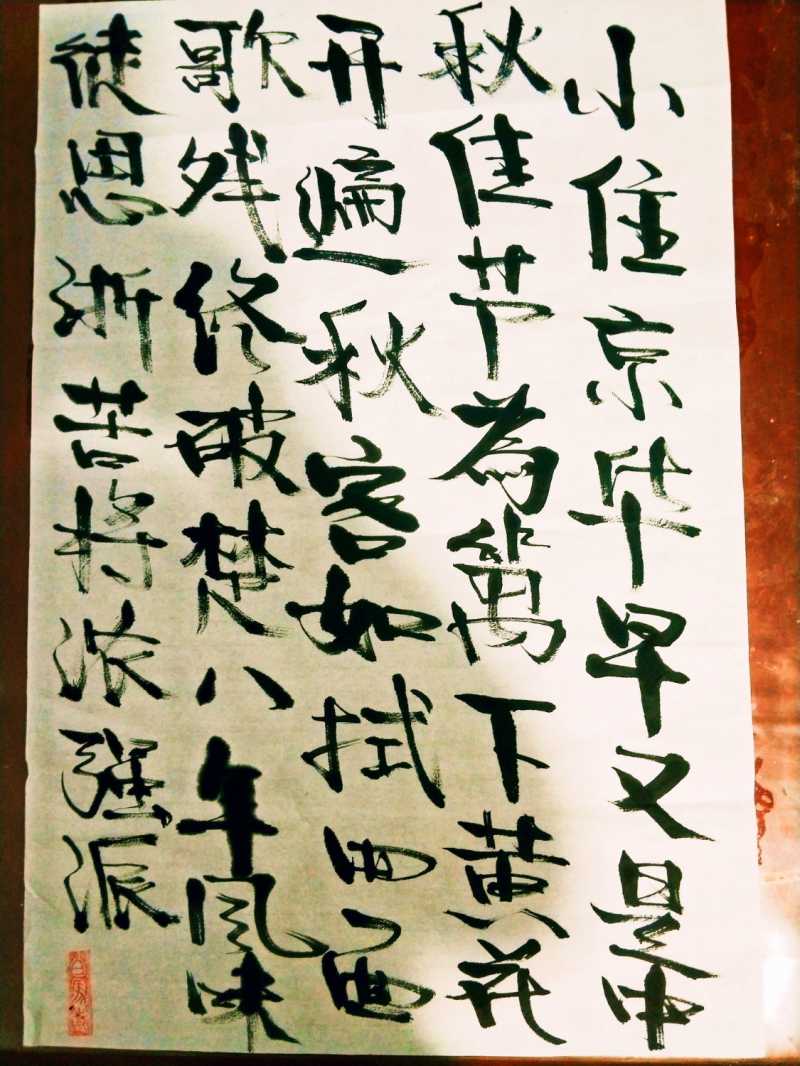 小住京华早又是中
秋佳节為篱下黄花
开遍秋容如拭四面
歌残终破楚八年风味
徒思浙苦将浓强派